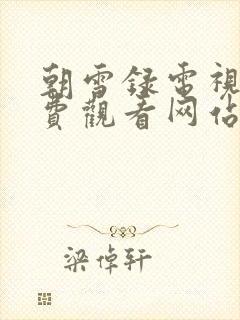 朝雪録電視
費觀看网佔
梁倬轩